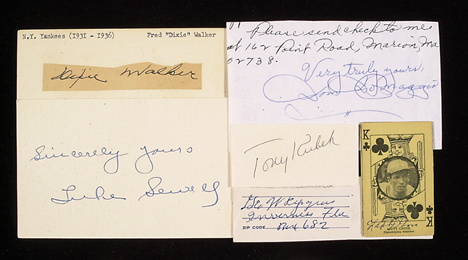 N.Y. Yankees (1931 - 1936) Fred "Dixie" Walker
Dixie Walker
Sincerely Yours
Luke Sewell
Please send check to me
at 162 Point Road, Marion, Ma
02738.
Very truly yours,
Dom DiMaggio
Tony Kubek
Inverness Fla
ZIP CODE Box 682
K
K